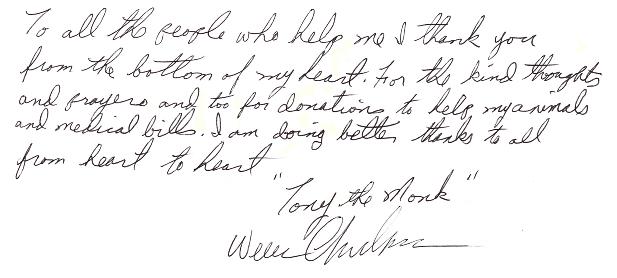 To all the people who help me I thank you
from the bottom of my heart. For the kind thoughts
and prayers and too for donations to help my animals
and medical bills. I am doing better thanks to all
from heart to heart
"Tony the Monk"